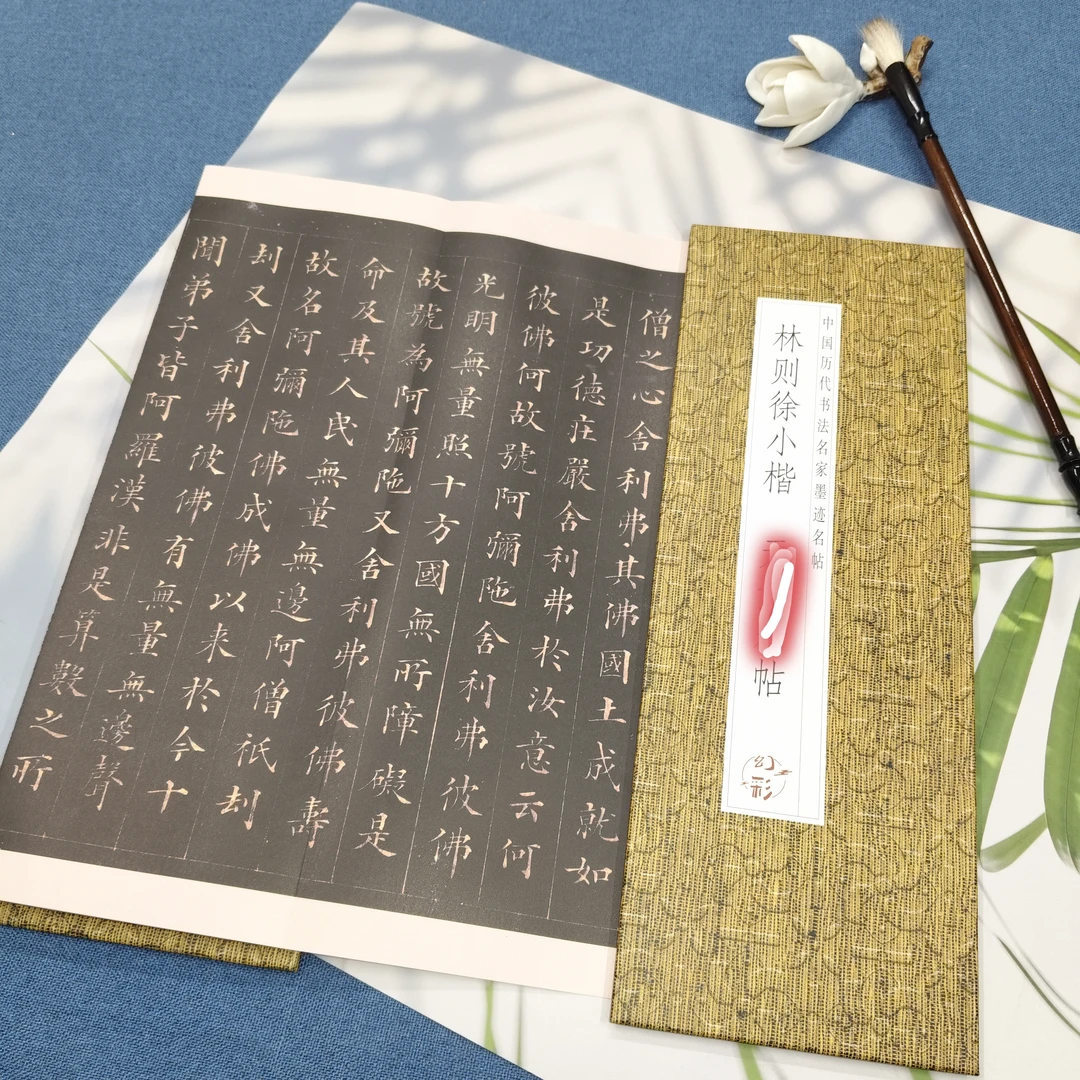 中国历代书法名家墨迹名帖
林则徐小楷
帖
幻彩
僧之心舍利弗其佛國土成就如
是功德庄嚴舍利弗於汝意云何
彼佛何故號阿彌陁舍利弗彼佛
光明無量照十方國無所障礙是
故號為阿彌陁又舍利弗彼佛壽
命及其人民無量無邊阿僧祇刦
故名阿彌陁佛成佛以来於今十
刦又舍利弗彼佛有無量無邊聲
聞弟子皆阿羅漢非是算數之所